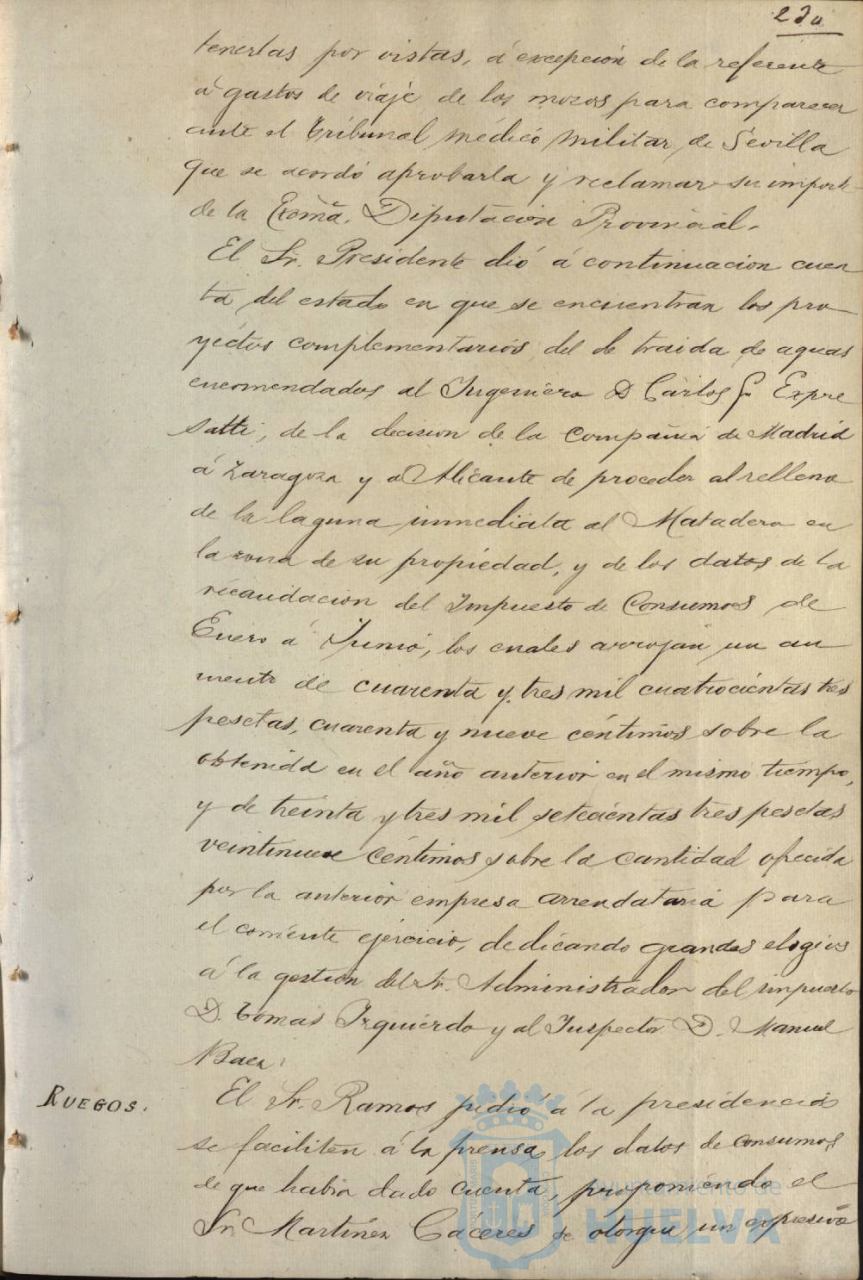 tenertas por vistas, á excepción de la referente
á gastos de viaje de los mozos para comparecer
ante el Tribunal médico militar de Sevilla
que se acordó aprobarla y reclamar su import-
de la Excmã. Diputación Provincial.
El Sr. Presidente dió á continuacion cuen
ta del estado en que se encuentran los pro-
yectos complementarios del de traida de aguas
encomendados al Ingeniero D Carlos G. Expre
satti, de la decision de la compañia de Madrid
á Zaragoza y á Alicante de proceder al relleno
de la laguna inmediata al Matadero en
la zona de su propiedad, y de los datos de la
recaudacion del Impuesto de Consumos de
Enero á Junio, los cuales arrojan un au
mento de cuarenta y tres mil cuatrocientas tres
pesetas, cuarenta y nueve céntimos sobre la
obtenida en el año anterior en el mismo tiempo,
y de treinta y tres mil setecientas tres pesetas
veintinueve céntimos sobre la cantidad ofrecida
por la anterior empresa arrendataria para
el corriente ejercicio, dedicando grandes elogios
á la gestión del Sr. Administrador del impuesto
D. Tomas Izquierdo y al Inspector D. Manuel
Baca.
RUEGOS.
El Sr. Ramos pidió á la presidencia
se faciliten á la prensa los datos de consumos
de que habia dado cuenta, proponiendo el
Sr. Martinez Cáceres se otorgue un expresivo
Ayuntamiento de
HUELVA